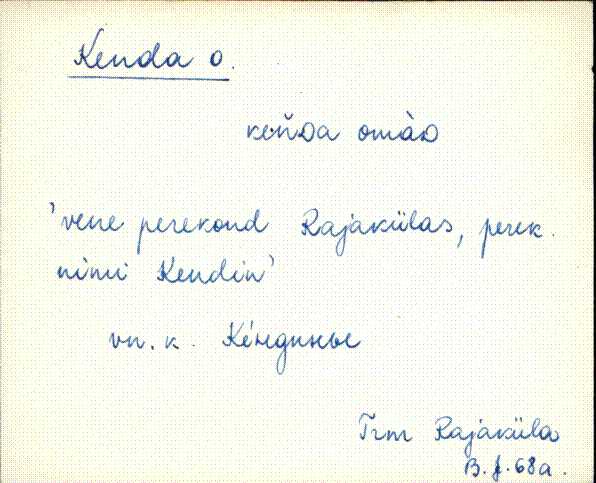 Kenda o.
keňDa omàD
'vene perekond Rajakülas, perek.
nimi Kendin'
vn. k. Ке́ндины
Trm Rajaküla
B.J.68a.